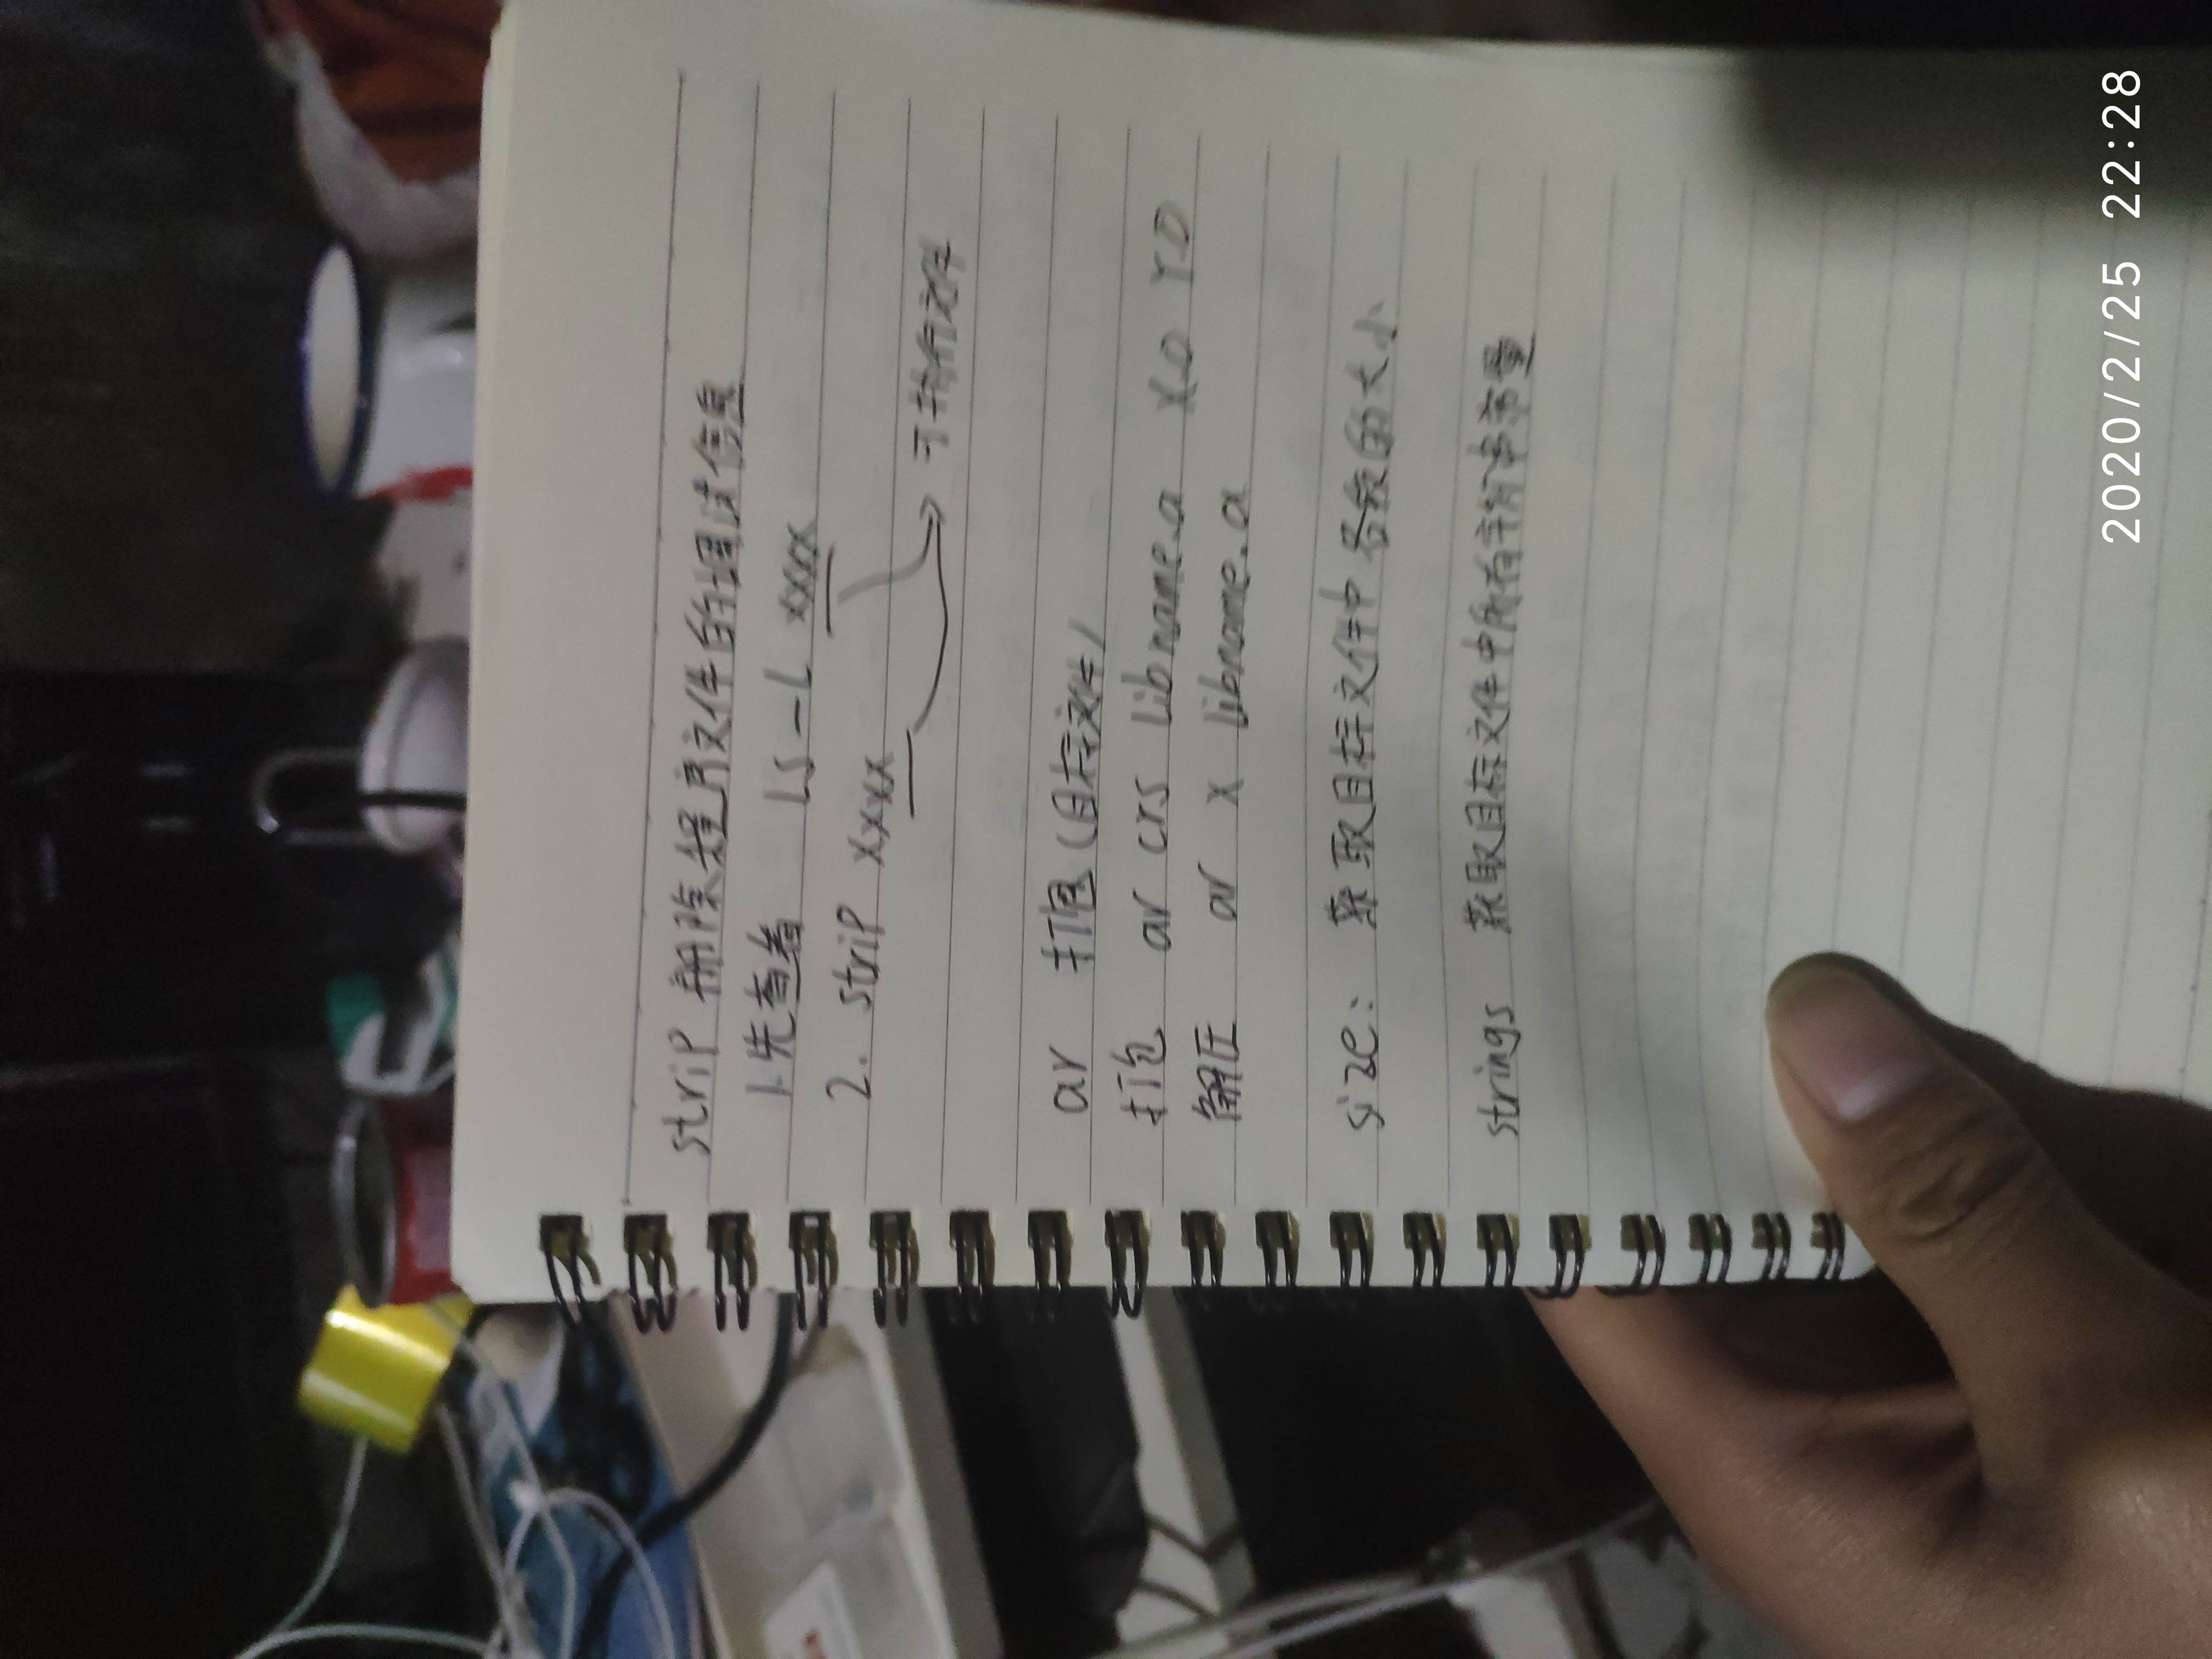 strip 删除程序文件的调试信息
1.先查看 ls -l xxxx
2. strip xxxx
可执行文件
ar 打包(目标文件)
打包 ar crs libname.a X.o Y.o
解压 ar x libname.a
size: 获取目标文件中各段的大小
strings 获取目标文件中所有字符串常量
2020/2/25 22:28